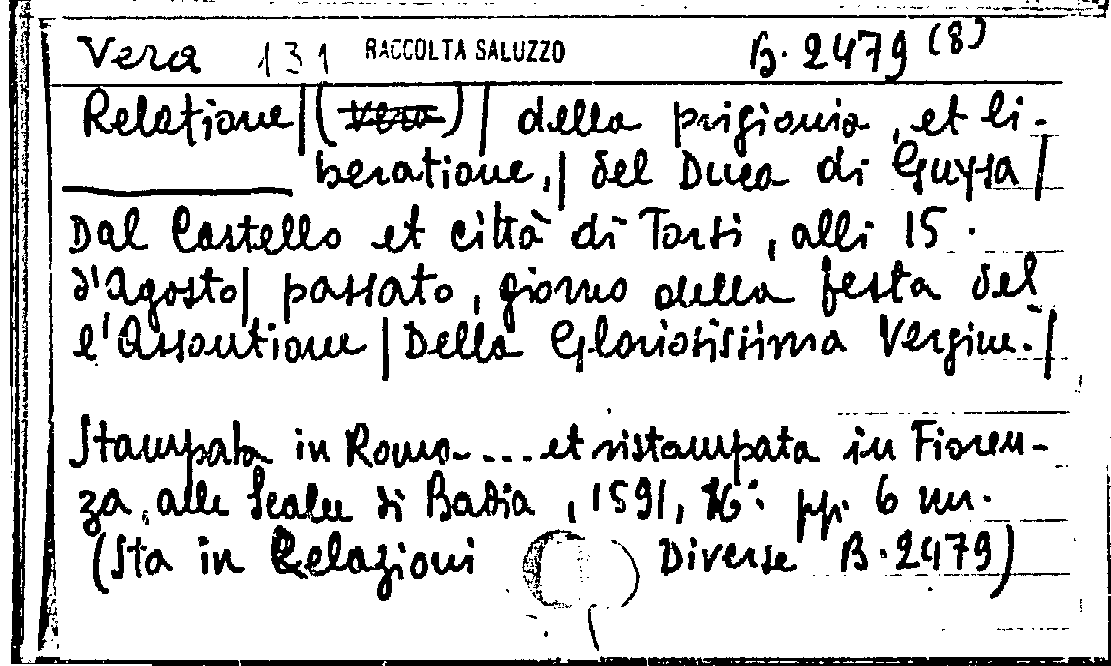 Vera 131 RACCOLTA SALUZZO B. 2479 (8)
Relatione|(Vera)| della prigionia, et li-
beratione,| del Duca di Guysa|
Dal Castello et città di Torsi, alli 15.
d'Agosto| passato, giorno della festa del
l'Assontione| Della Gloriosissima Vergine.|
Stampata in Roma.... et ristampata in Fioren-
za, alle Scalee di Badia, 1591, 16° pp. 6 nn.
(Sta in Relazioni Diverse B.2479)